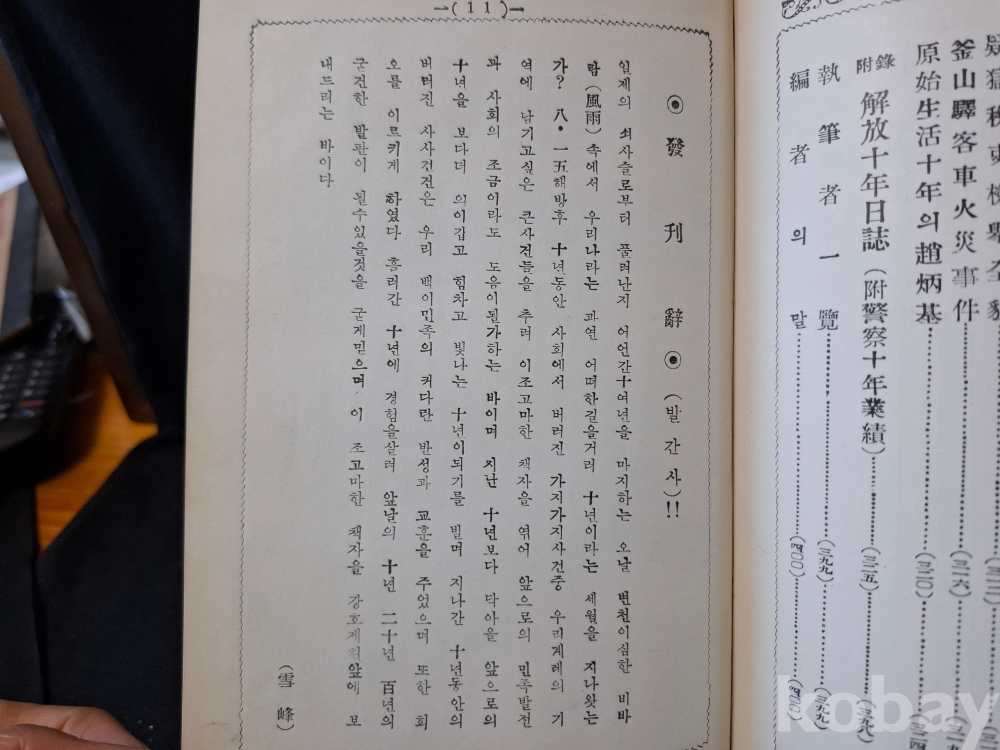 釜山驛客車火災事件
原始生活十年의趙炳基……(三二〇)
附錄 解放十年日誌(附警察十年業績)……(三二五)……(三九八)
執筆者一覽……(三九九)……(三九九)
編者의말……(四〇〇)……(四〇〇)
—(11)—
◉ 發刊辭 ◉ (발간사)!!
일제의 쇠사슬로부터 풀려난지 어언간十여년을 마지하는 오날 변천이심한 비바
람(風雨)속에서 우리나라는 과연 어떠한길을거러 十년이라는 세월을 지나왓는
가? 八•一五해방후 十년동안 사회에서 버러진 가지가지사건중 우리게레의 기
역에 남기고싶은 큰사건들을 추려 이조고마한 책자을 엮어 앞으로의 민족발전
과 사회의 조금이라도 도음이될가하는 바이며 지난 十년보다 닥아을 앞으로의
十년을 보다더 의이깁고 힘차고 빛나는 十년이되기를 빌며 지나간 十년동안의
버러진 사사건건은 우리 백이민족의 커다란 반성과 교훈을 주었으며 또한 회
오를 이르키게 하였다 흘러간 十년에 경험을살려 앞날의 十년 二十년 百년의
굳건한 발판이 될수있을것을 굳게믿으며 이 조고마한 책자을 강호제현앞에 보
내드리는 바이다
(雪峰)
kobay